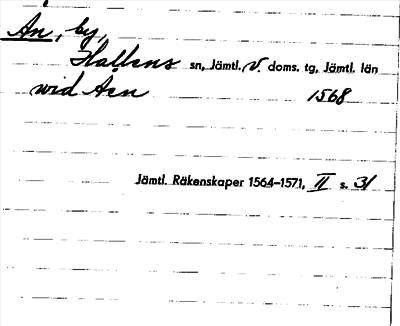 Ån, by,
Hallens sn, Jämtl. V. doms. tg, Jämtl. län
wid Åen 1568
Jämtl. Räkenskaper 1564-1571, II s. 31